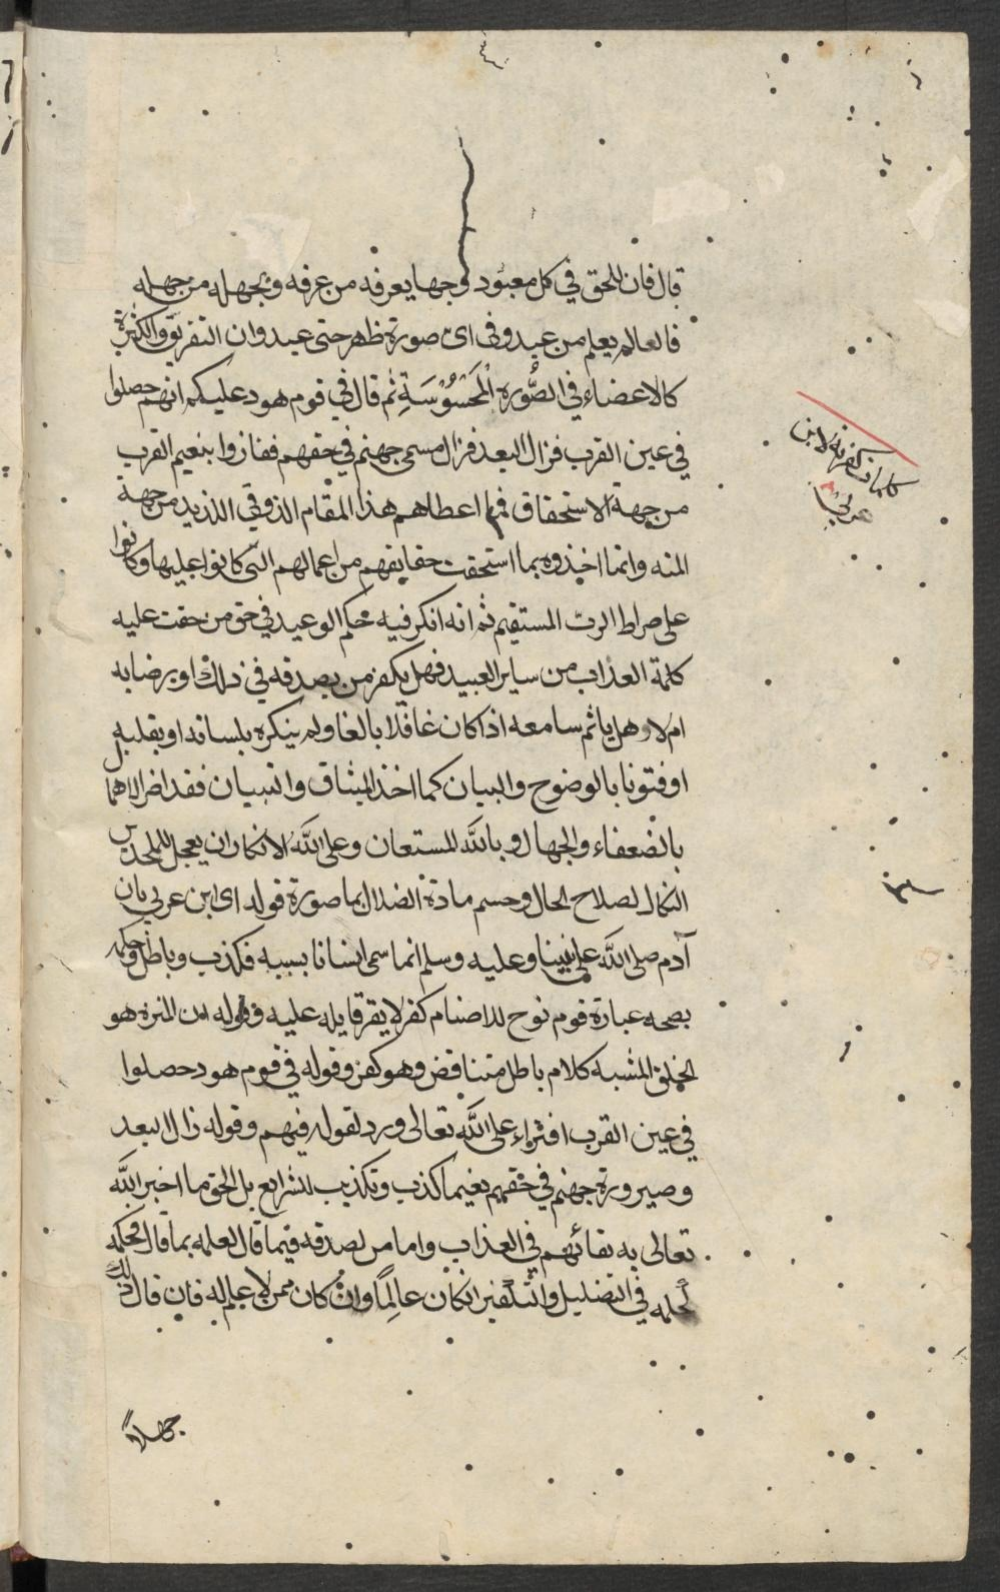 قال فان للحق في كل معبود وجها يعرفه من عرفه ويجهله من جهله
فالعالم يعلم من عبد وفي اى صورة ظهر حتى عبد وان التفريق والكثرة
كالاعضاء في الصُّورة الْمَحْسُوْسَةِ ثم قال في قوم هود عليكم انهم حصلوا
في عين القرب فزال البعد فزال مسمى جهنم في حقهم ففازوا بنعيم القرب
من جهة الاستحقاق فما اعطاهم هذا المقام الذوقي اللذيذ من جهة
المنه وانما اخذوه بما استحقت حقايقهم من اعمالهم التى كانوا عليها وكانوا
على صراط الرب المستقيم ثم انه انكر فيه حكم الوعيد في حق من حقت عليه
كلمة العذاب من ساير العبيد فهل يكفر من يصدقه في ذلك او يرضا به
ام لا وهل ياثم سامعه اذا كان غافلا بالغا ولم ينكره بلسانه او بقلبه
افتونا بالوضوح والبيان كما اخذ الميثاق والتبيان فقد اضر الاهما
بالضعفاء والجهال وبالله المستعان وعلى الله الاتكال ان يعجل للملحدين
النكال لصلاح الحال وحسم مادة الضلال بما صورة قوله اى ابن عربي بان
آدم صلى الله على نبينا وعليه وسلم انما سمى انسانا بسببه فكذب وباطل وحكمه
بصحه عبادة قوم نوح للاصنام كفر لا يقر قايله عليه وقوله ان المنزه هو
الخلق المشبه كلام باطل متناقض وهو كفر وقوله في قوم هود حصلوا
في عين القرب افتراء على الله تعالى ورد لقوله فيهم وقوله زال البعد
وصيرورة جهنم في حقهم نعيما كذب وتكذيب للشرايع بل الحق ما اخبر الله
تعالى به بقائهم في العذاب واما من يصدقه فيما قال لعلمه بما قال فحكمه
كحكمه في التضليل والتكفير ان كان عالِمًا وان كان ممن لا علم له فان قال ذلك
جهلاً
كلمات كفرية لابن
عربي